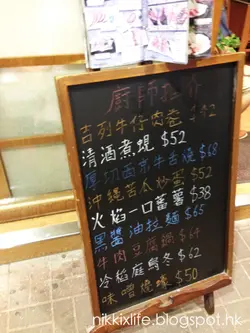 廚師推介
吉列牛仔肉卷 $42
清酒煮蜆 $52
厚切西京牛舌燒 $68
沖繩苦瓜炒蛋 $52
火焰一口蕃薯 $38
黑醬油拉麵 $65
牛肉豆腐鍋 $64
冷稻庭烏冬 $62
味噌燒蠔 $50
nikkixlife.blogspot.hk